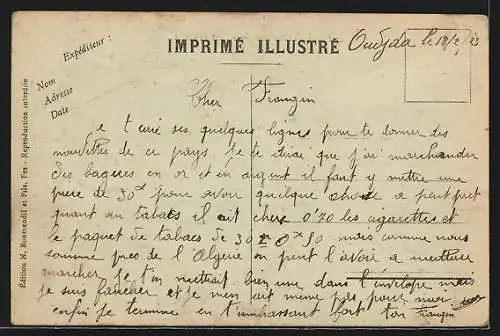 Expéditeur :
Nom
Adresse
Date
IMPRIMÉ ILLUSTRÉ
Oudjda le 18/2/23
Édition N. Boumendil et Fils, Fes - Reproduction interdite
Cher Frangin
e t'ecrie ses quelques lignes pour te donner des
de ce pays je te dirai que j'ai marchander
des bagues en or et en argent il faut y mettre une
piece de 30 pour avoir quelque chose a peut pret
quant au tabacs il ait chere 0'70 les cigarettes et
le paquet de tabacs de 30 mais comme nous
somme pres de l'Algerie on peut l'avoir a meilleur
marcher je t'en mettrait bien une dans l'envelope mais
je suis faucher et je n'en ait meme pas pour moi
enfin je termine en t'embrassant fort ton Frangin